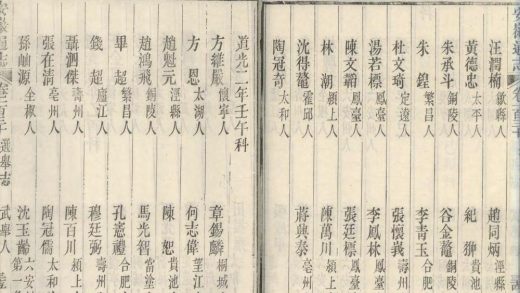 汪潤楠 歙縣人 趙同炳 涇縣
黃德忠 太平人 紀 貴池
朱承斗 銅陵人 谷金鰲 銅陵
朱鍠 繁昌人 李青玉 合肥
杜文琦 定遠人 張懷義 壽州
湯若標 鳳臺人 李鳳林 鳳臺
陳文 鳳臺人 張廷標 鳳臺
林湖 潁上人 陳萬川 潁上
沈得鰲 霍邱人 蔣興泰 亳州
陶冠奇 太和人
道光二年壬午科
方維嚴 懷寧人 章錫麟 桐城
方恩 太湖人 何志偉 望江
趙魁元 涇縣人 陳恕 貴池
趙鴻飛 銅陵人 馬先智 當塗
畢超 繁昌人 孔憲禮 合肥
錢超 廬江人 穆廷弼 壽州
聶泗傑 壽州人 陳百川 潁上
張在清 亳州人 陶冠儒 太和
孫岫源 全椒人 沈玉齡 六安
安徽通志 選舉志 武舉人